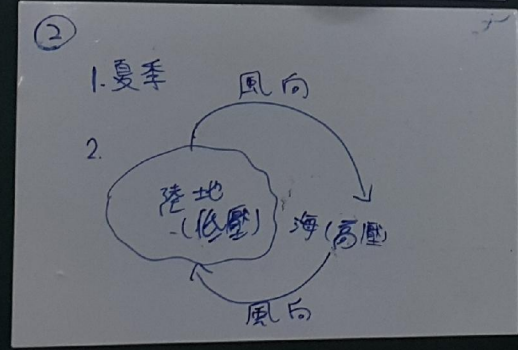 ②
1. 夏季
風向
2.
陸地
(低壓)
海(高壓)
風向